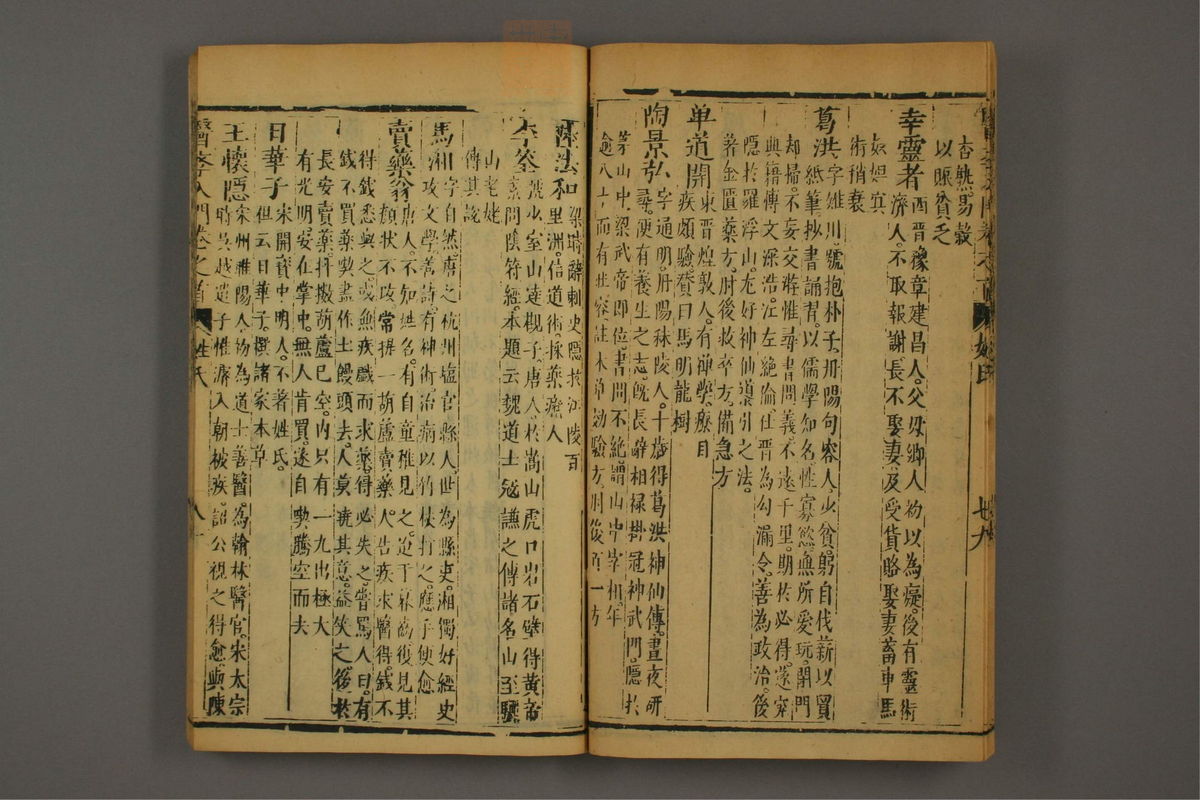 杏熟易穀
以賑貧乏
幸靈者西晉豫章建昌人父母鄉人初以為癡後有靈術
濟人不取報謝長不娶妻及受貨賂娶妻畜車馬
奴婢其
術稍衰
葛洪字雉川號抱朴子丹陽句容人少貧躬自伐薪以買
紙筆抄書誦習以儒學知名性寡慾無所愛玩閉門
却掃不妄交遊惟尋書問義不遠千里期於必得遂究
典籍博文深浩江左絶倫仕晉為勾漏令善為政治後
隱於羅浮山尤好神仙導引之法
著金匱藥方肘後救卒方備急方
单道開東晉煌敦人有禪學療目
疾頗驗贊曰馬明龍樹
陶景弘字通明丹陽秣陵人十歲得葛洪神仙傳晝夜研
尋便有養生之志既長辭相禄掛冠神武門隱於
茅山中梁武帝即位書問不絶謂山中宰相年
逾八十而有壯容註本草効驗方肘後百一方
陸法和梁時辭刺史隱於江陵百
里洲信道術採藥濟人
李筌號少室山達觀子唐人於嵩山虎口岩石壁得黃帝
素問陰符經本題云魏道士冠謙之傳諸名山至驪
山老姥
傳其說
馬湘字自然唐之杭州塩官縣人世為縣吏湘獨好經史
攻文學善詩有神術治病以竹杖打之應手便愈
賣藥翁唐人不知姓名有自童稚見之迨于暮齒復見其
顏狀不改常提一葫蘆賣藥人告疾求醫得錢不
得錢悉與之或無疾戲而求藥得必失之嘗罵人曰有
錢不買藥喫盡作土饅頭去人莫曉其意益笑之後於
長安賣藥抖擻葫蘆已空內只有一丸出極大
有光明安在掌中無人肯買遂自喫騰空而去
日華子宋開寶中明人不著姓氏
但云日華子撰諸家本草
王懷隱宋州睢陽人初為道士善醫為翰林醫官宋太宗
時吳越遣子惟濬入朝被疾詔公視之得愈與陳
醫學入門卷之首 姓氏